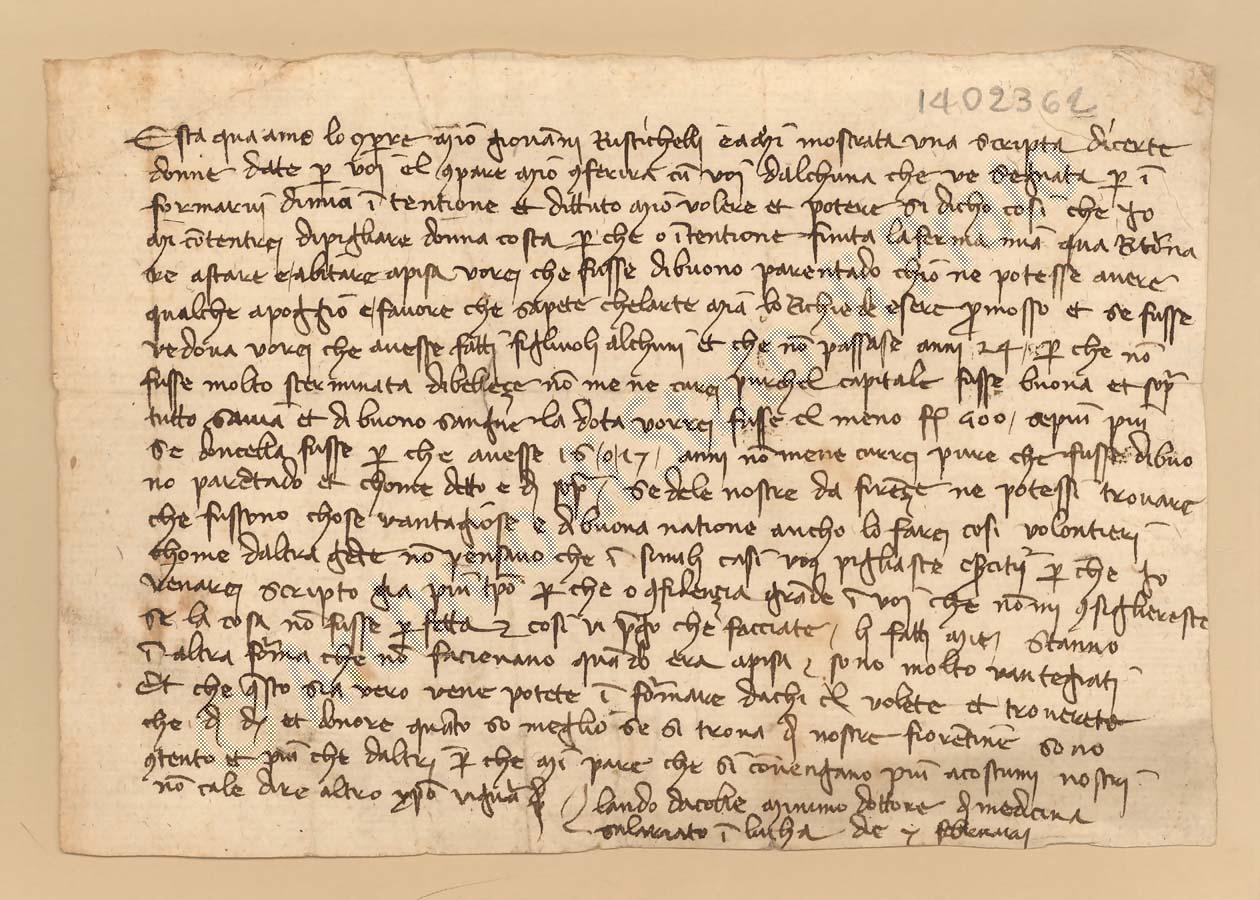 1402362
Esta qua ame lo 9pre mio giovāni Rustichelli e a mi mostrata una scripta di certe
donne date p voi el 9pare mio 9ferira cū voi dalchuna che ve segnata p ī
formarvi di mia ītentione et dittuto mio volere et potere si dicho cosi che Io
mi cōtentrei di pigliare donna costa p che o ītentione finita la ferma mia qua
re a stare e abitare a pisa vorei che fusse di buono parentado chio ne potesse avere
qualche apoggio e favore che sapete che larte mia lo Richiede esere pmosso et se fusse
vedova vorei che avesse fatti figluuoli alchuni et che nō passase anni 24 p che nō
fusse molto sterminata di belleçe nō me ne curei pur chel capitale fusse buona et sop
tutto savia et di buono sangue la dota vorrei fusse el meno f 500 se piu piu
se doncella fusse p che avesse 16 o 17 anni nō mene currei pure che fusse di buo
no parētado et chome detto e di sop se dele nostre da firēçe ne potessi trovare
che fussono chose vantagiose e di buona natione ancho lo farei cosi volontieri
chome daltra gēte nō pensavo che ī simili casi voi pigliaste p che Io
venarei scripto gia piu tpo p che o 9fidençia grāde ī voi che nōmi 9sigliereste
se la cosa nō fusse pfetta e cosi vi pgo che facciate li fatti miei stanno
ī altra forma che nō facievano quādo era a pisa e sono molto vantegiati
Et che qsto sia vero vene potete īformare da chi el volete et troverete
che di di et donore quāto so meglio se si trova di nostre fiorētine sono
9tento et piu che daltri p che mi pare che si cōvengano piu a costumi nostri
nō cale dire altro xpo
lando da colle minimo dottore di medicina
salariato ī lucha de 7 februarii